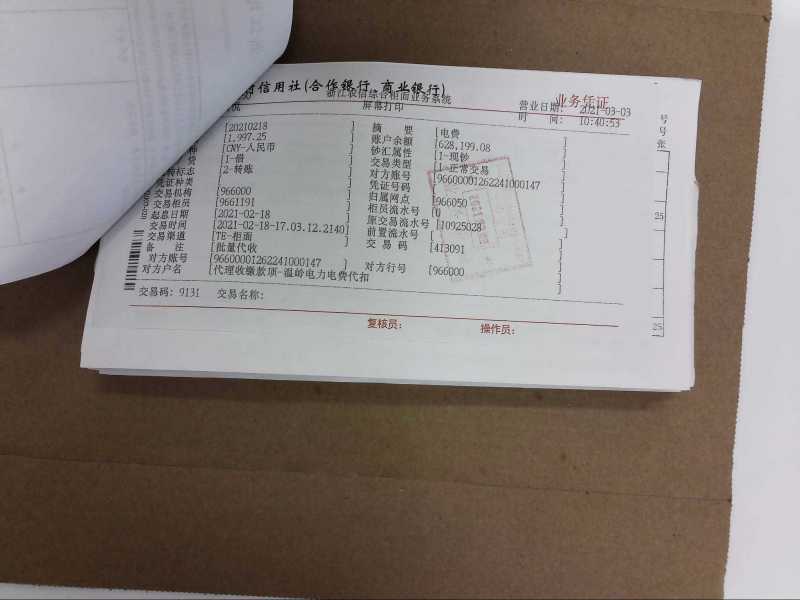 村信用社(合作银行、商业银行) 业务凭证
浙江农信综合柜面业务系统
屏幕打印 营业日期: 2021-03-03
时 间: 10:40:53
[20210218 ] 摘 要 [电费
[1,997.25 ] 账户余额 [628,199.08 ]
种 [CNY-人民币 ] 钞汇属性 [1-现钞 ]
贷 [1-借 ] 交易类型 [1-正常交易 ]
转标志 [2-转账 ] 对方账号 [96600001262241000147 ]
凭证种类 [ ] 凭证号码 [ ]
交易机构 [966000 ] 归属网点 [966050 ]
交易柜员 [9661191 ] 柜员流水号 [0 ]
起息日期 [2021-02-18 ] 原交易流水号 [10925028 ]
交易时间 [2021-02-18-17.03.12.2140] 前置流水号 [ ]
交易渠道 [TE-柜面 ] 交 易 码 [413091 ]
备 注 [批量代收 ]
对方账号 [96600001262241000147 ] 对方行号 [966000 ]
对方户名 [代理收缴款项-温岭电力电费代扣 ]
交易码: 9131 交易名称:
复核员: 操作员:
号
号
张
25
25